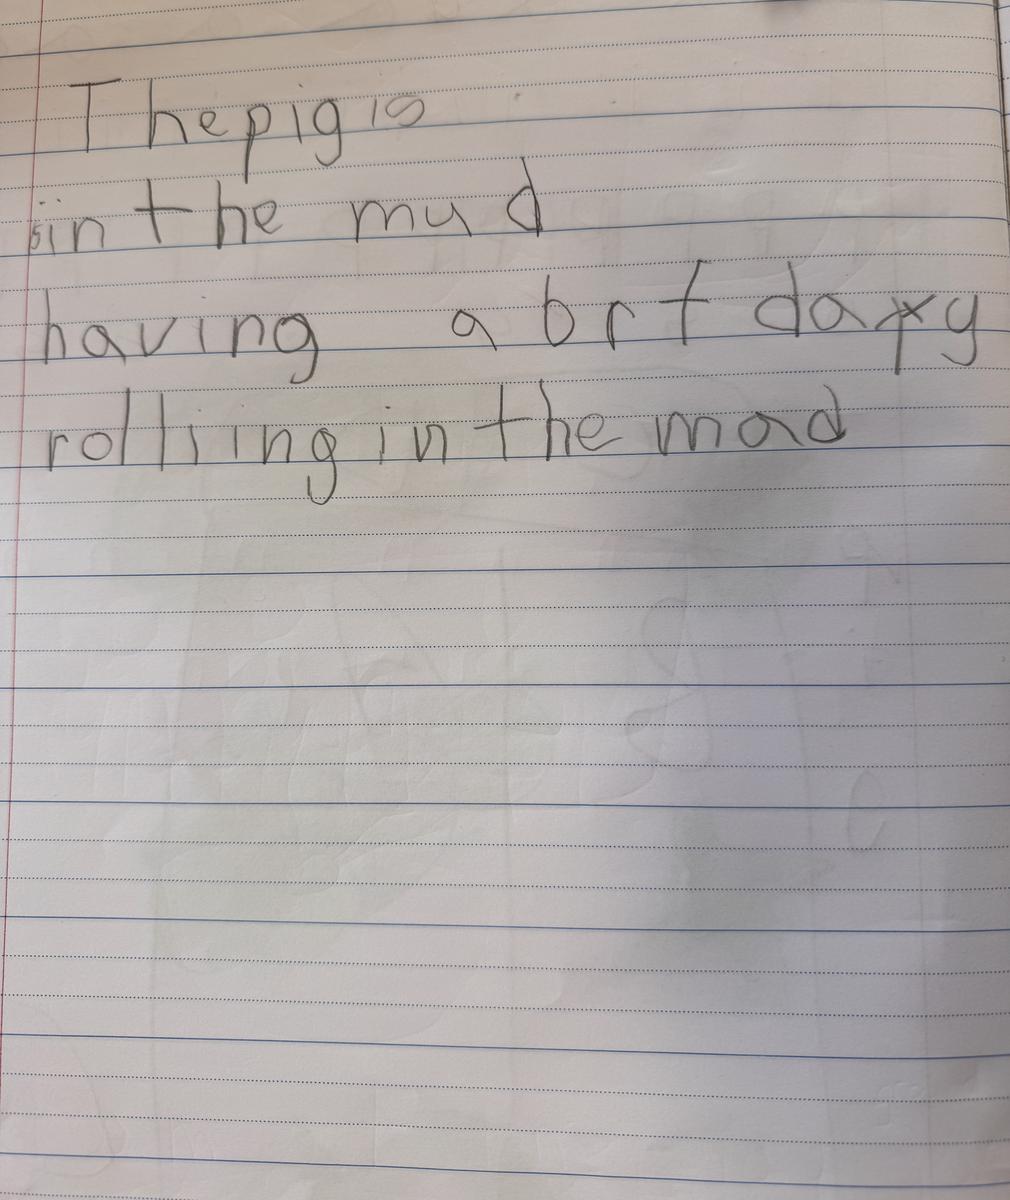 The pig is
in the mud
having a brt day
rolliing in the mad